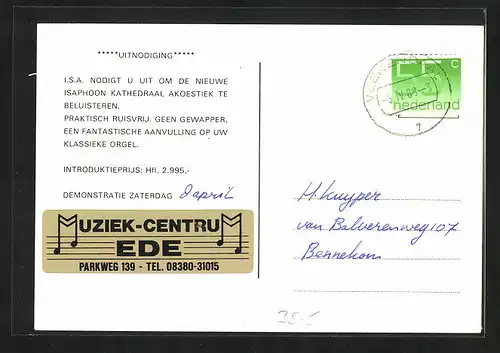 *****UITNODIGING*****
I.S.A. NODIGT U UIT OM DE NIEUWE
ISAPHOON KATHEDRAAL AKOESTIEK TE
BELUISTEREN.
PRAKTISCH RUISVRIJ. GEEN GEWAPPER,
EEN FANTASTISCHE AANVULLING OP UW
KLASSIEKE ORGEL.
INTRODUKTIEPRIJS: Hfl. 2.995,-
DEMONSTRATIE ZATERDAG 9 april
MUZIEK-CENTRUM
EDE
PARKWEG 139 - TEL. 08380-31015
55 c
nederland
7
H. Kuyper
van Balverenweg 107
Bennekom